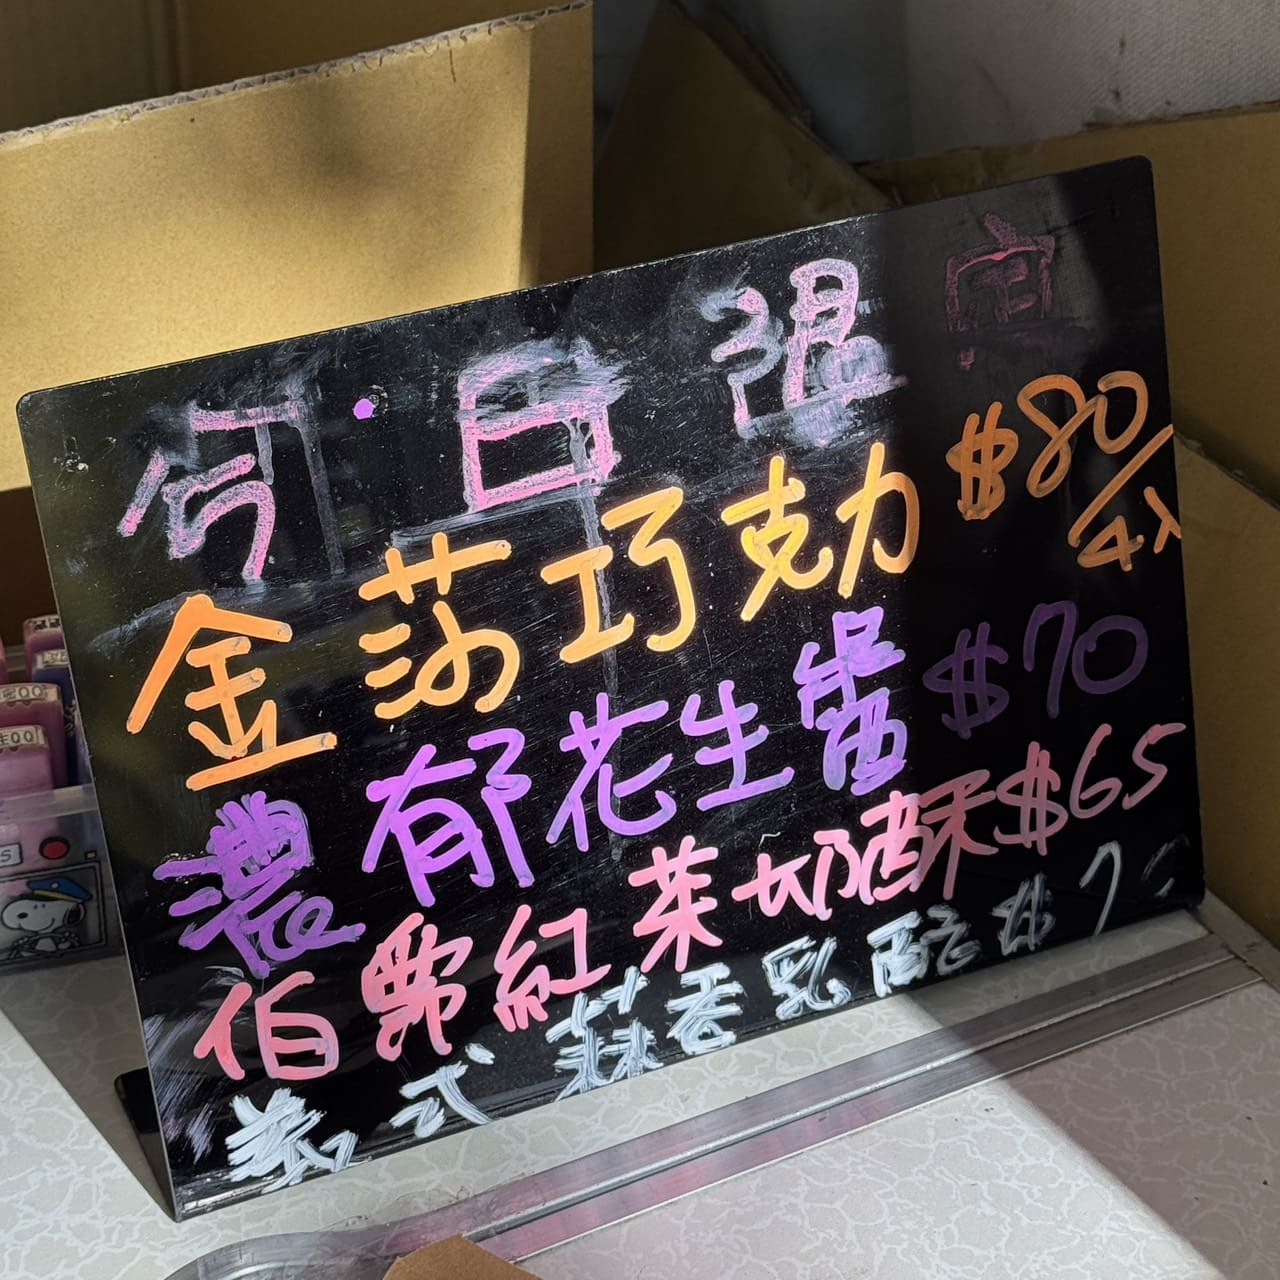 今日溫
金莎巧克力 $80/4入
濃郁花生醬 $70
伯爵紅茶奶酥 $65
美式蒜香乳酪 $7